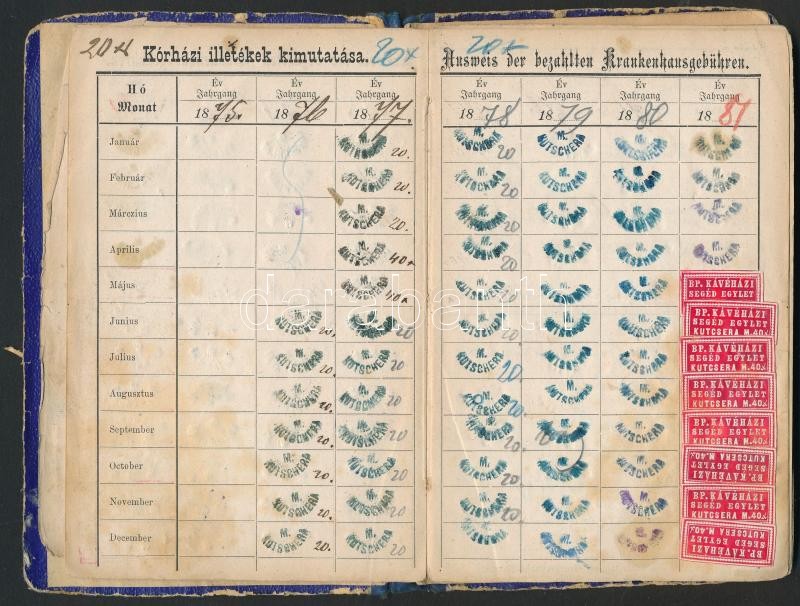 20 x Kórházi illetékek kimutatása. 20 x
20 x Ausweis der bezahlten Krankenhausgebühren.
Hó Év Év Év Év Év Év Év
Monat Jahrgang Jahrgang Jahrgang Jahrgang Jahrgang Jahrgang Jahrgang
1875. 1876 1877. 1878 1879 1880 1881
Január M. KUTSCHERA 20. M. KUTSCHERA 20 M. KUTSCHERA M. KUTSCHERA M. KUTSCHERA
Február M. KUTSCHERA 20. M. KUTSCHERA 20 M. KUTSCHERA M. KUTSCHERA M. KUTSCHERA
Márczius M. KUTSCHERA 20. M. KUTSCHERA 20 M. KUTSCHERA M. KUTSCHERA M. KUTSCHERA
Április M. KUTSCHERA 40 x M. KUTSCHERA 20 M. KUTSCHERA M. KUTSCHERA M. KUTSCHERA
Május M. KUTSCHERA 40 x M. KUTSCHERA 20 M. KUTSCHERA M. KUTSCHERA BP. KÁVÉHÁZI
SEGÉD EGYLET
Junius M. KUTSCHERA 20. M. KUTSCHERA 20 M. KUTSCHERA 20 M. KUTSCHERA M. KUTSCHERA BP. KÁVÉHÁZI
SEGÉD EGYLET
KUTCSERA M. 40x
Julius M. KUTSCHERA 20. M. KUTSCHERA 20 M. KUTSCHERA 20. M. KUTSCHERA M. KUTSCHERA BP. KÁVÉHÁZI
SEGÉD EGYLET
KUTCSERA M. 40x
Augusztus M. KUTSCHERA 20. M. KUTSCHERA 20 M. KUTSCHERA 20. M. KUTSCHERA M. KUTSCHERA BP. KÁVÉHÁZI
SEGÉD EGYLET
KUTCSERA M. 40x
September M. KUTSCHERA 20. M. KUTSCHERA 20 M. KUTSCHERA 20. M. KUTSCHERA M. KUTSCHERA BP. KÁVÉHÁZI
SEGÉD EGYLET
KUTCSERA M. 40x
October M. KUTSCHERA 20. M. KUTSCHERA 20 M. KUTSCHERA 20 M. KUTSCHERA M. KUTSCHERA BP. KÁVÉHÁZI
SEGÉD EGYLET
KUTCSERA M. 40x
November M. KUTSCHERA 20. M. KUTSCHERA 20 M. KUTSCHERA 20 M. KUTSCHERA M. KUTSCHERA BP. KÁVÉHÁZI
SEGÉD EGYLET
KUTCSERA M. 40x
December M. KUTSCHERA 20. M. KUTSCHERA 20 M. KUTSCHERA M. KUTSCHERA M. KUTSCHERA BP. KÁVÉHÁZI
SEGÉD EGYLET
KUTCSERA M. 40x
darabanth